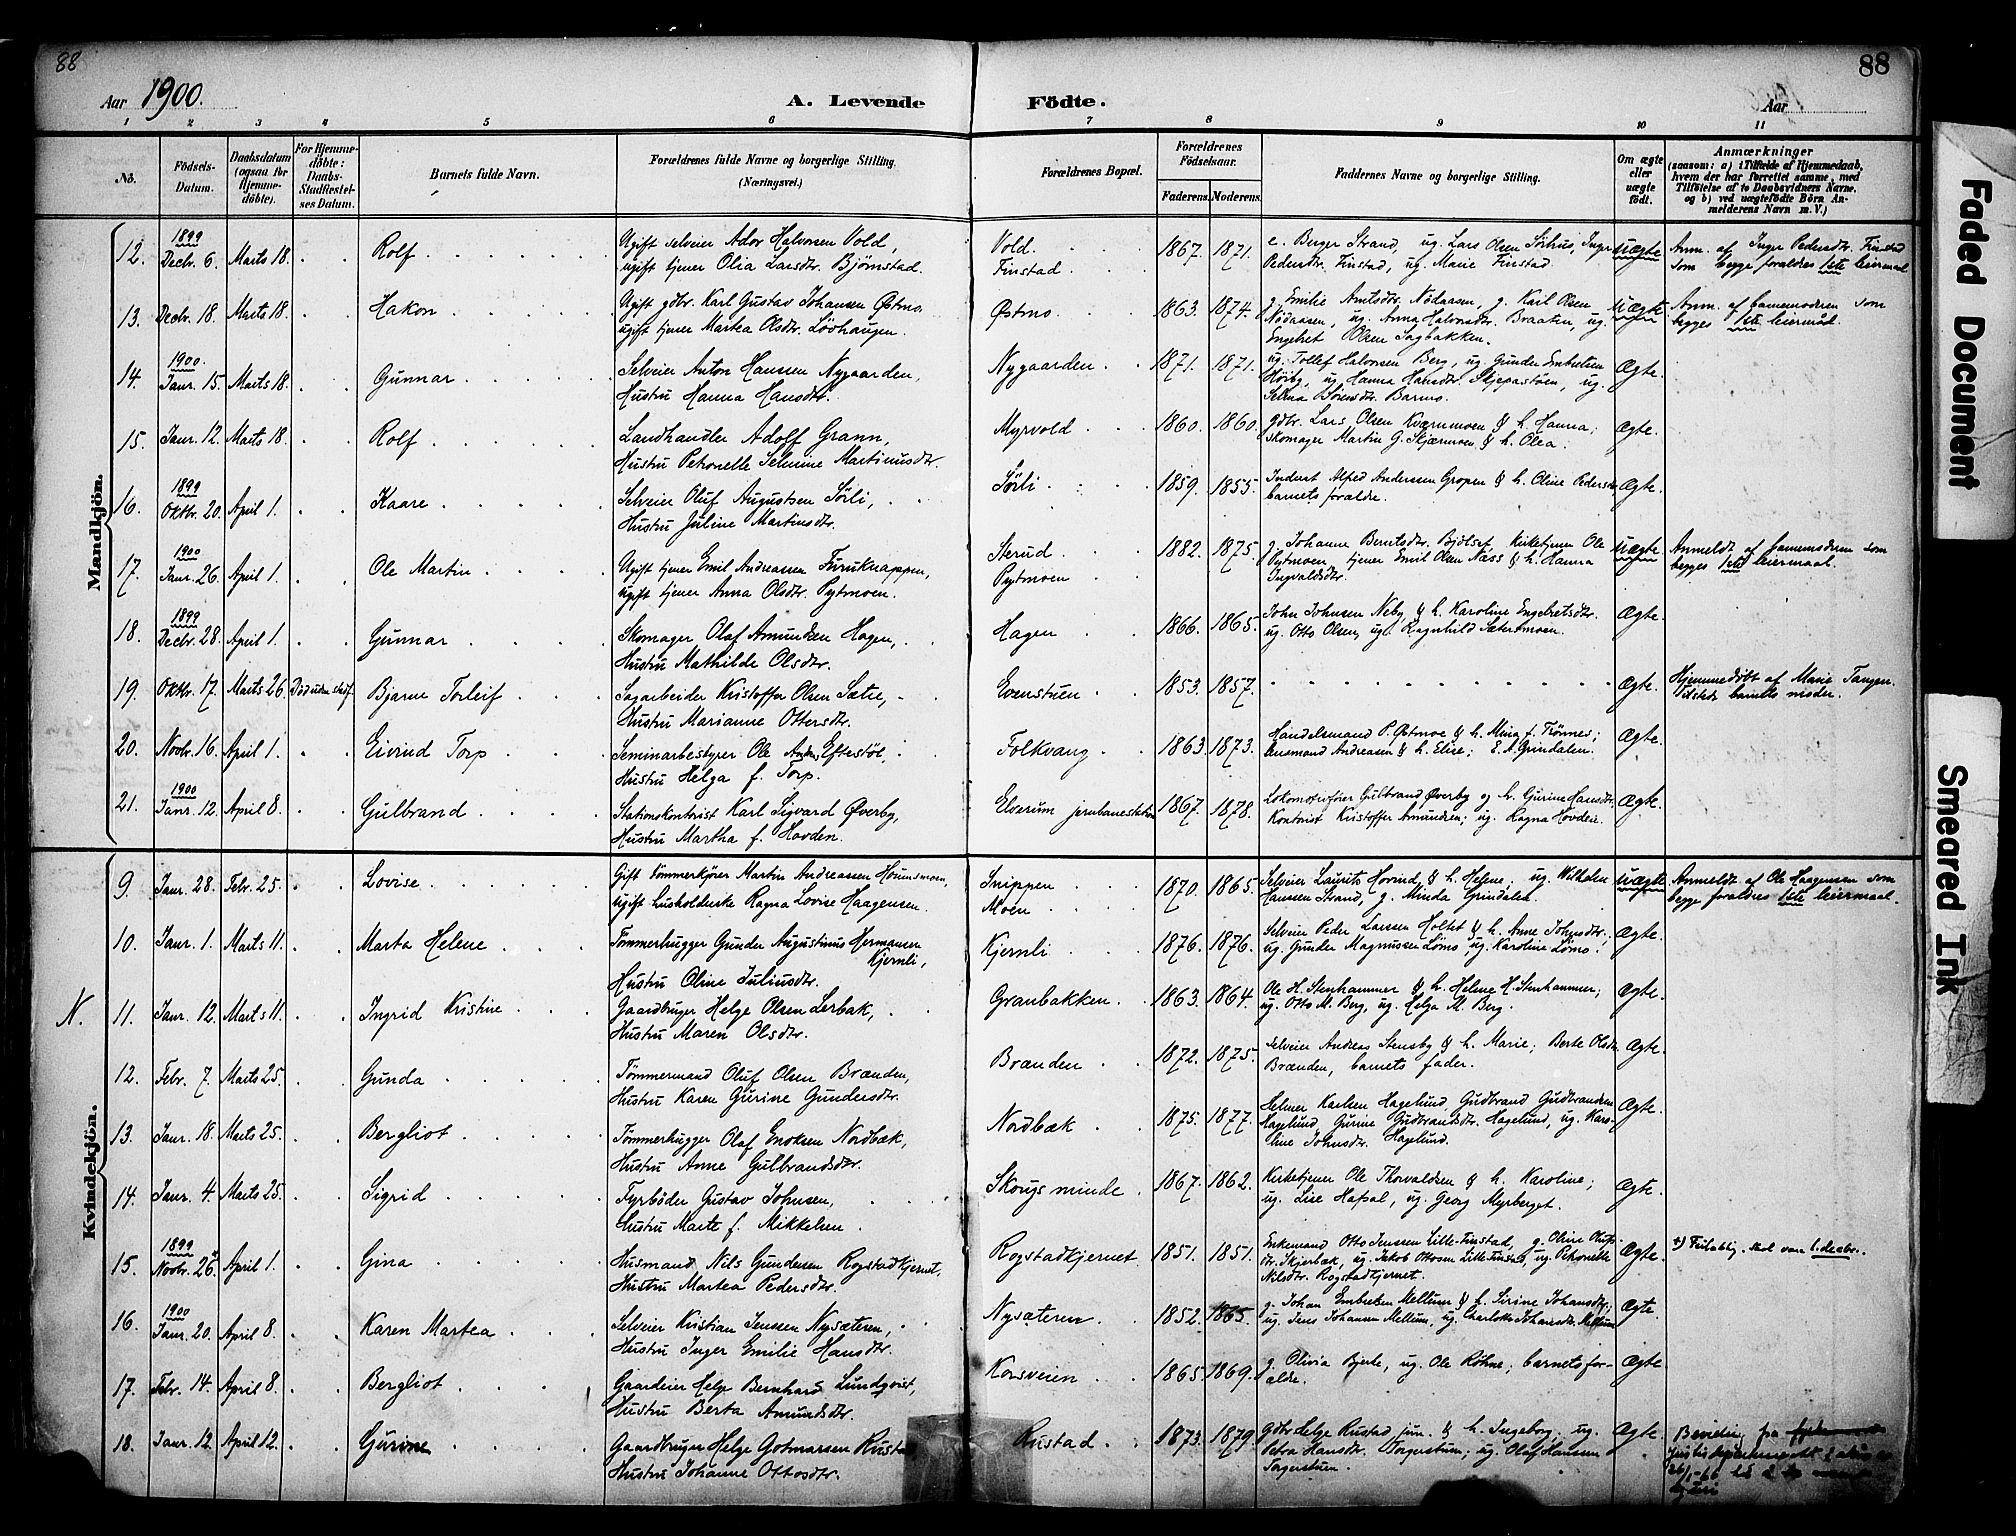 88
88
Aar 1900.
A. Levende
Födte.
Aar
1 2 3 4 5 6 7 8 9 10 11
No.
Födsels-Datum.
Daabsdatum (ogsaa for Hjemme-döbte).
For Hjemme-döbte: Daabs-Stadfæstel-ses Datum.
Barnets fulde Navn.
Forældrenes fulde Navne og borgerlige Stilling.
(Næringsvei.)
Forældrenes Bopæl.
Forældrenes Födselsaar.
Faderens. Moderens.
Faddernes Navne og borgerlige Stilling.
Om ægte eller uægte födt.
Anmærkninger
(saasom: a) i Tilfælde af Hjemmedaab, hvem der har forrettet samme, med Tilföielse af to Daabsvidners Navne, og b) ved uægtefödte Börn An-melderens Navn m. V.)
Mandkjön.
12. 1899 Decbr. 6. Marts 18. Rolf Ugift selveier Ador Halvorsen Vold, Vold. 1867. 1871. e. Berger Strand, ug. Lars Olsen Sörhus, Inger uægte Anm. af Inger Pedersdtr. Finstad
ugift tjener Olia Larsdtr. Bjørnstad. Finstad Pedersdtr. Finstad, ug. Marie Finstad. som begge forældres 1ste leiermaal
13. Decbr. 18. Marts 18. Hakon Ugift gdbr. Karl Gustav Johansen Østmo, Østmo. 1863. 1874. g. Emilie Amtsdtr. Nödaasen, g. Karl Olsen uægte Anm. af barnemoderen som
ugift tjener Martea Olsdtr. Lövhaugen. Nödaasen, ug. Anna Halvorsdtr. Braaten, ug. begges 1ste leiermaal.
Engebret Olsen Sagbakken.
14. 1900. Janr. 15. Marts 18. Gunnar Selveier Anton Hanssen Nygaarden, Nygaarden 1871. 1871. ug. Tollef Halvorsen Berg, ug. Gunder Embretsen Ægte.
Hustru Hanna Hansdtr. Höiby, ug. Hanna Hansdtr. Skjepastuen, ug.
15. Janr. 12. Marts 18. Rolf Landhandler Adolf Grann, Myrvold 1860. 1860. gdbr. Lars Olsen Kværnmoen & h. Hanna; Ægte.
Hustru Petronelle Selmine Martinusdtr. skomager Martin G. Skjærmoen & h. Olea.
16. 1899 Oktbr. 20. April 1. Kaare Selveier Oluf Augustsen Sörli, Sörli 1859. 1855. Inderst Alfred Andersen Gropen & h. Oline Pedersdtr Ægte.
Hustru Juline Martinsdtr. barnets forældre.
17. 1900 Janr. 26. April 1. Ole Martin Ugift tjener Emil Andreassen Furuknappen, Sterud 1882. 1875. g. Johanne Berntsdtr. Bjölset, kirketjener Ole uægte Anmeldt af barnemoderen som
ugift tjener Anna Olsdtr. Pytmoen. Pytmoen Pytmoen, tjener Emil Olsen Næss & h. Hanna begges 1ste leiermaal.
Ingvaldsdtr.
18. 1899 Decbr. 28. April 1. Gunnar Skomager Olaf Amundsen Hagen, Hagen 1866. 1865. John Johnsen Neby & h. Karoline Engebretsdtr. Ægte.
Hustru Mathilde Olsdtr. ug. Otto Olsen, ug. Ragnhild Sætermoen.
19. Oktbr. 17. Marts 26. Död uden stadf. Bjarne Torleif Sagarbeider Kristoffer Olsen Sætre, Evenstuen 1853. 1857. Ægte. Hjemmedöbt af Marie Tangen
Hustru Marianne Ottersdtr. barnets moder.
20. Novbr. 16. April 1. Eivind Torp Seminarbestyrer Ole Anders. Eftestöl, Folkvang 1863. 1873. Handelsmand P. Østmoe & h. Mina f. Trönnes; Ægte.
Hustru Helga f. Torp. lensmand Andreasen & h. Elise; E. A. Grindalen.
21. 1900 Janr. 12. April 8. Gulbrand Stationskontorist Karl Sigvard Øverby, Elverum jernbanestation 1867. 1878. Lokomotivfører Gulbrand Øverby og h. Gurine Hansdtr. Ægte.
Hustru Martha f. Hovden. Kontorist Kristoffer Amundsen; ug. Ragna Hovden.
Kvindekjön.
9. Janr. 28. Febr. 25. Lovise Gift Tömmerkjörer Martin Andreassen Horundsmoen, Snippen 1870. 1865. Selveier Laurits Hovind & h. Helene, ug. Wilhelm uægte Anmeldt af Ole Haagensen som
ugift husholderske Ragna Lovise Haagensen. Moen Hanssen Strand, g. Minda Grindalen. begge forældres 1ste leiermaal.
10. Janr. 1. Marts 11. Marta Helene Tömmerhugger Gunder Augustinus Hermansen Kjernli, Kjernli 1876. 1876. Selveier Peder Larssen Holtet & h. Anne Johnsdtr.; Ægte.
Hustru Oline Juliusdtr. ug. Gunder Magnussen Lömo, ug. Karoline Lömo.
N. 11. Janr. 12. Marts 11. Ingrid Kristine Gaardbruger Helge Olsen Lerbak, Granbakken 1863. 1864. Ole H. Stenhammer & h. Helene H. Stenhammer; Ægte.
Hustru Maren Olsdtr. ug. Otto M. Berg, ug. Helga M. Berg.
12. Febr. 7. Marts 25. Gunda Tömmermand Oluf Olsen Brænden, Brænden 1872. 1875. Selveier Andreas Stensby & h. Marie; Berte Olsdtr. Ægte.
Hustru Karen Gurine Gundersdtr. Brænden, barnets fader.
13. Janr. 18. Marts 25. Bergliot Tömmerhugger Olaf Enoksen Nordbæk, Nordbæk 1875. 1877. Helmer Karlsen Hagelund, Gudbrand Gudbrandsen Ægte.
Hustru Anne Gulbrandsdtr. Hagelund, Gurine Gudbrandsdtr. Hagelund, ug. Karo-
line Johnsdtr. Hagelund.
14. Janr. 4. Marts 25. Sigrid Fyrböder Gustav Johnsen, Skougsminde 1867. 1862. Kirketjener Ole Thorvaldsen & h. Karoline; Ægte.
Hustru Marte f. Mikkelsen. ug. Lise Hafsal, ug. Georg Myrberget.
15. 1899 Novbr. 26. April 1. Gina Husmand Nils Gundersen Rogstadkjernet, Rogstadkjernet 1851. 1851. Enkemand Otto Jenssen Lille-Finstad, g. Oline Olufs- Ægte. +) Feilagtig, skal være 1. decbr.
Hustru Martea Pedersdtr. dtr. Skjerbæk, ug. Jakob Ottosen Lille-Finstad, ug. Petronelle
Nilsdtr. Rogstadkjernet.
16. 1900 Janr. 20. April 8. Karen Martea Selveier Kristian Jenssen Nysæteren, Nysæteren 1852. 1865. g. Johan Embretsen Mellum & h. Sirine Johansdtr.; Ægte.
Hustru Inger Emilie Hansdtr. ug. Jens Johansen Mellum, ug. Charlotte Johansdtr. Mellum
17. Febr. 14. April 8. Bergliot Gaardeier Helge Bernhard Lundqvist, Korsveien 1865. 1869. g. Olivia Bjerke, ug. Ole Röhne, barnets for- Ægte.
Hustru Berta Amundsdtr. ældre.
18. Janr. 12. April 12. Gurine Gaardbruger Helge Gotmarsen Rustad, Rustad 1873. 1879. Gdbr. Helge Rustad jun. & h. Ingeborg; ug. Ægte. Bevilling fra
Hustru Johanne Ottosdtr. Petra Hansdtr. Torgerstuen; ug. Olaf Hansen
Torgerstuen.
Faded Document
Smeared Ink